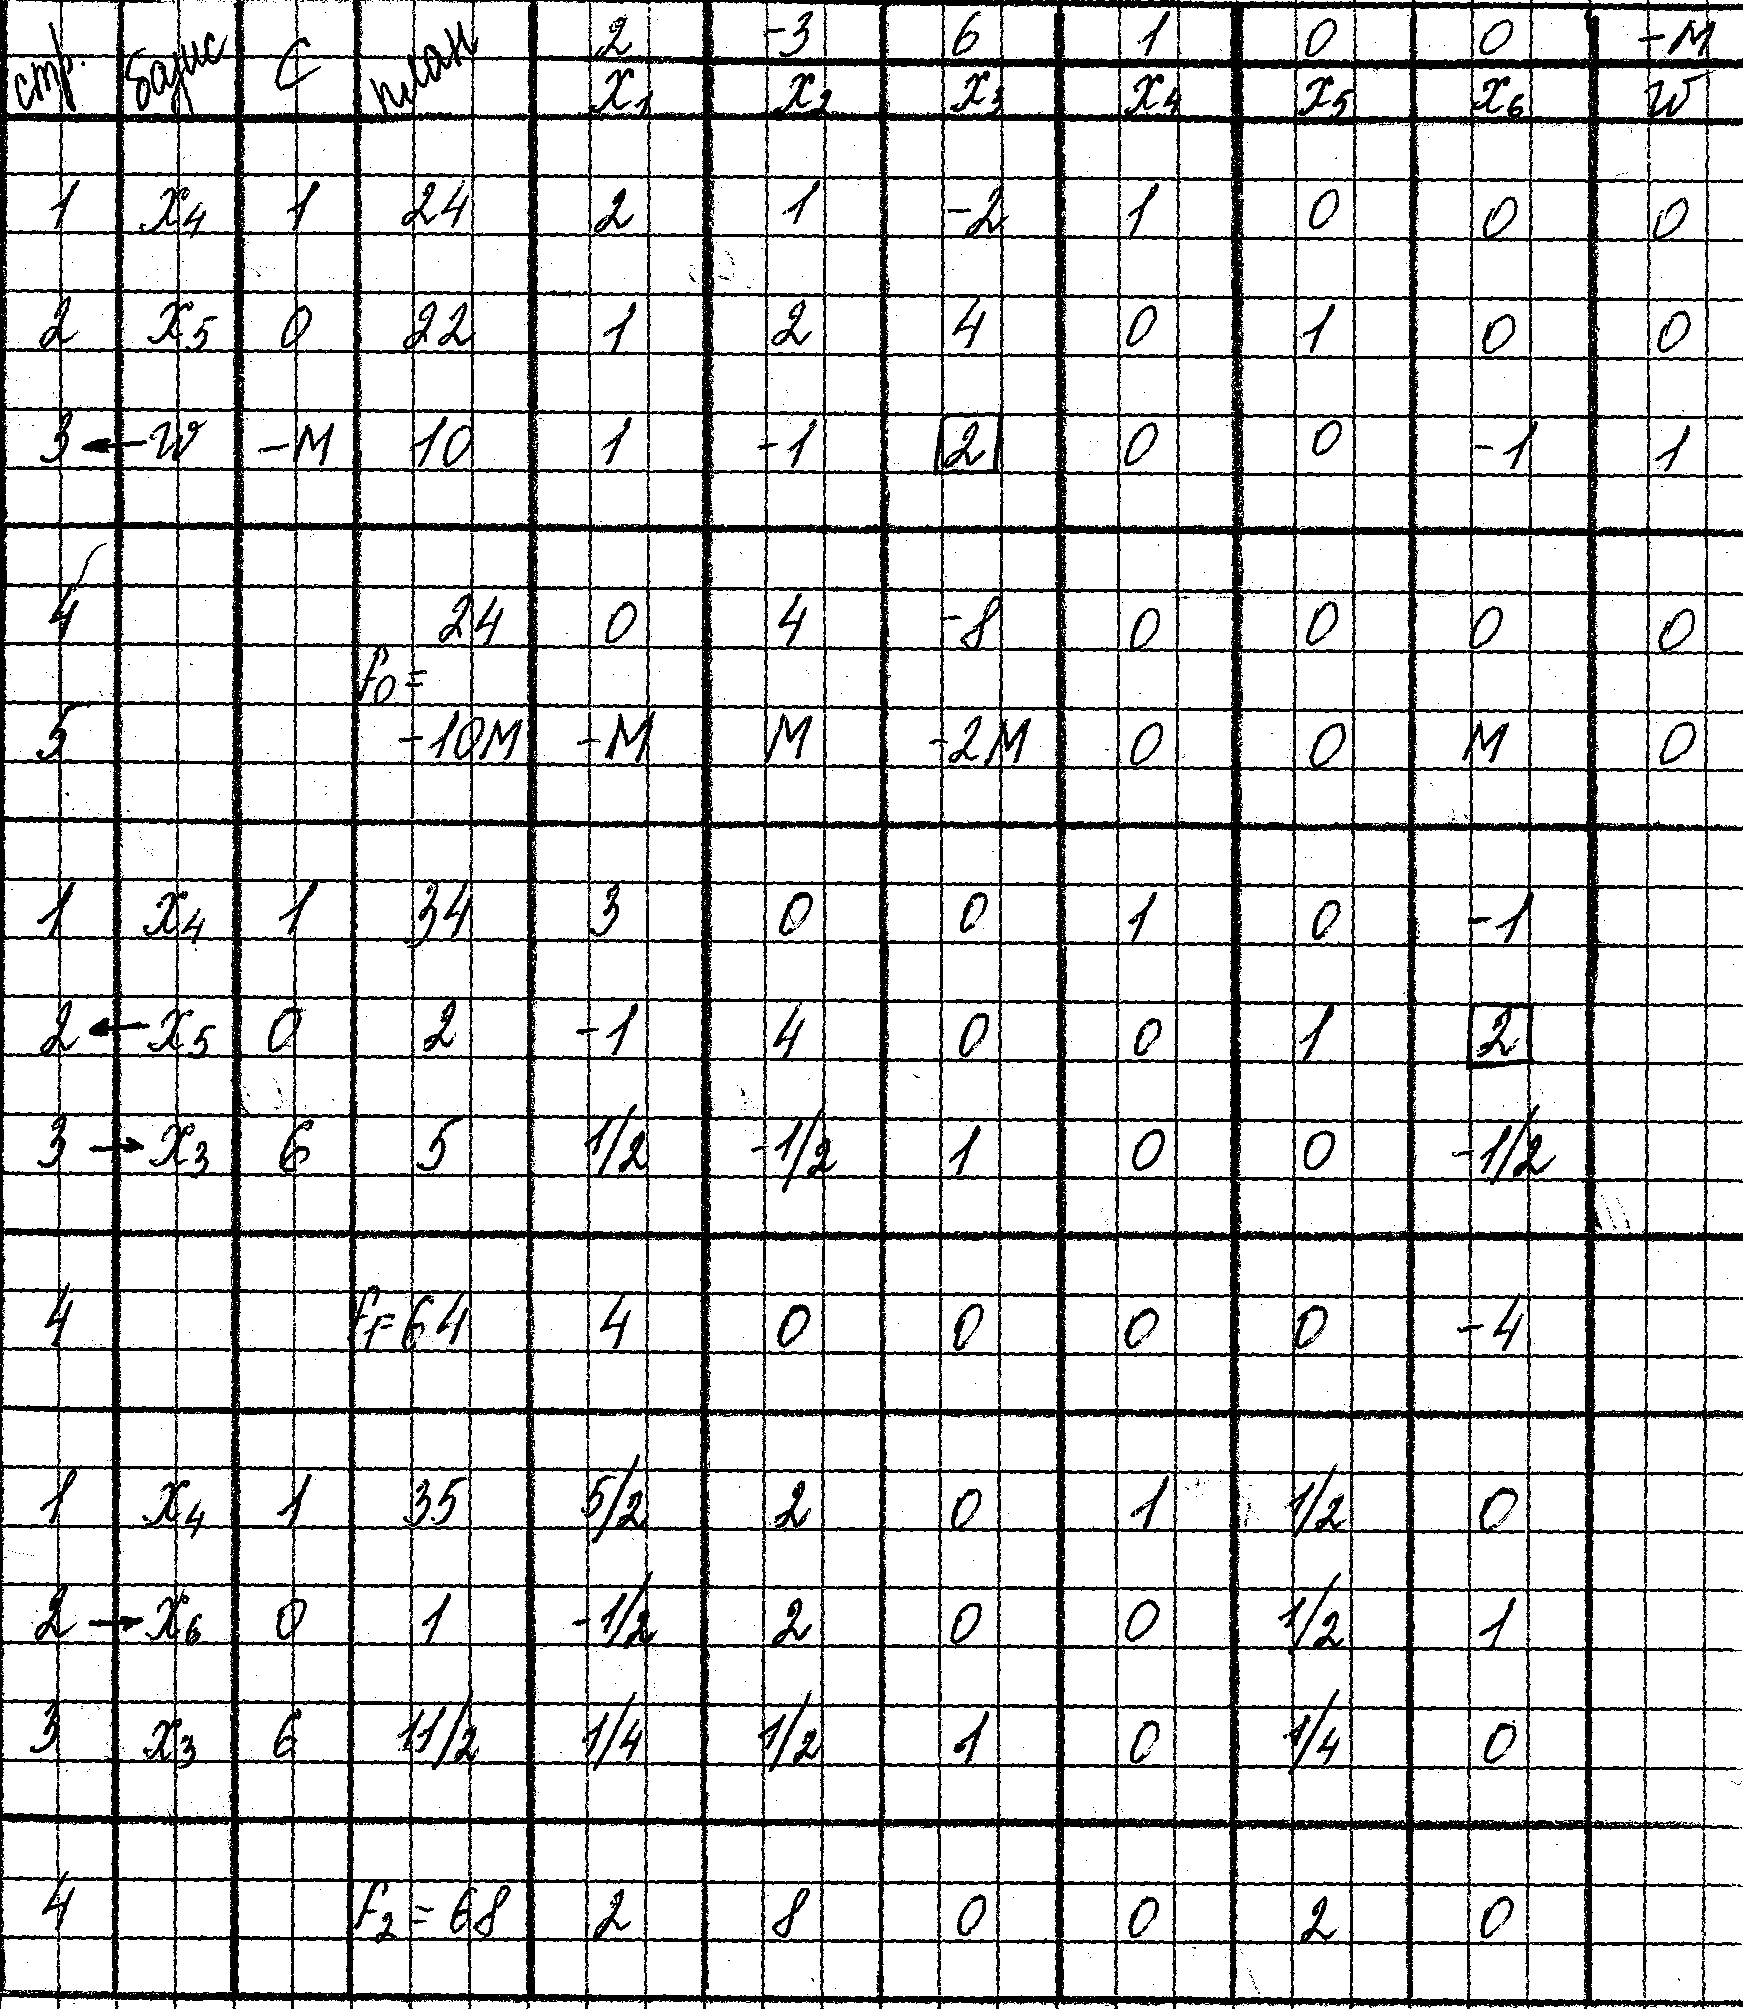 стр. базис C план 2 -3 6 1 0 0 -M
x1 x2 x3 x4 x5 x6 w
1 x4 1 24 2 1 -2 1 0 0 0
2 x5 0 22 1 2 4 0 1 0 0
3 ← w -M 10 1 -1 2 0 0 -1 1
4 24 0 4 -8 0 0 0 0
F0 =
5 -10M -M M -2M 0 0 M 0
1 x4 1 34 3 0 0 1 0 -1
2 ← x5 0 2 -1 4 0 0 1 2
3 → x3 6 5 1/2 -1/2 1 0 0 -1/2
4 F1= 64 4 0 0 0 0 -4
1 x4 1 35 5/2 2 0 1 1/2 0
2 → x6 0 1 -1/2 2 0 0 1/2 1
3 x3 6 11/2 1/4 1/2 1 0 1/4 0
4 F2 = 68 2 8 0 0 2 0